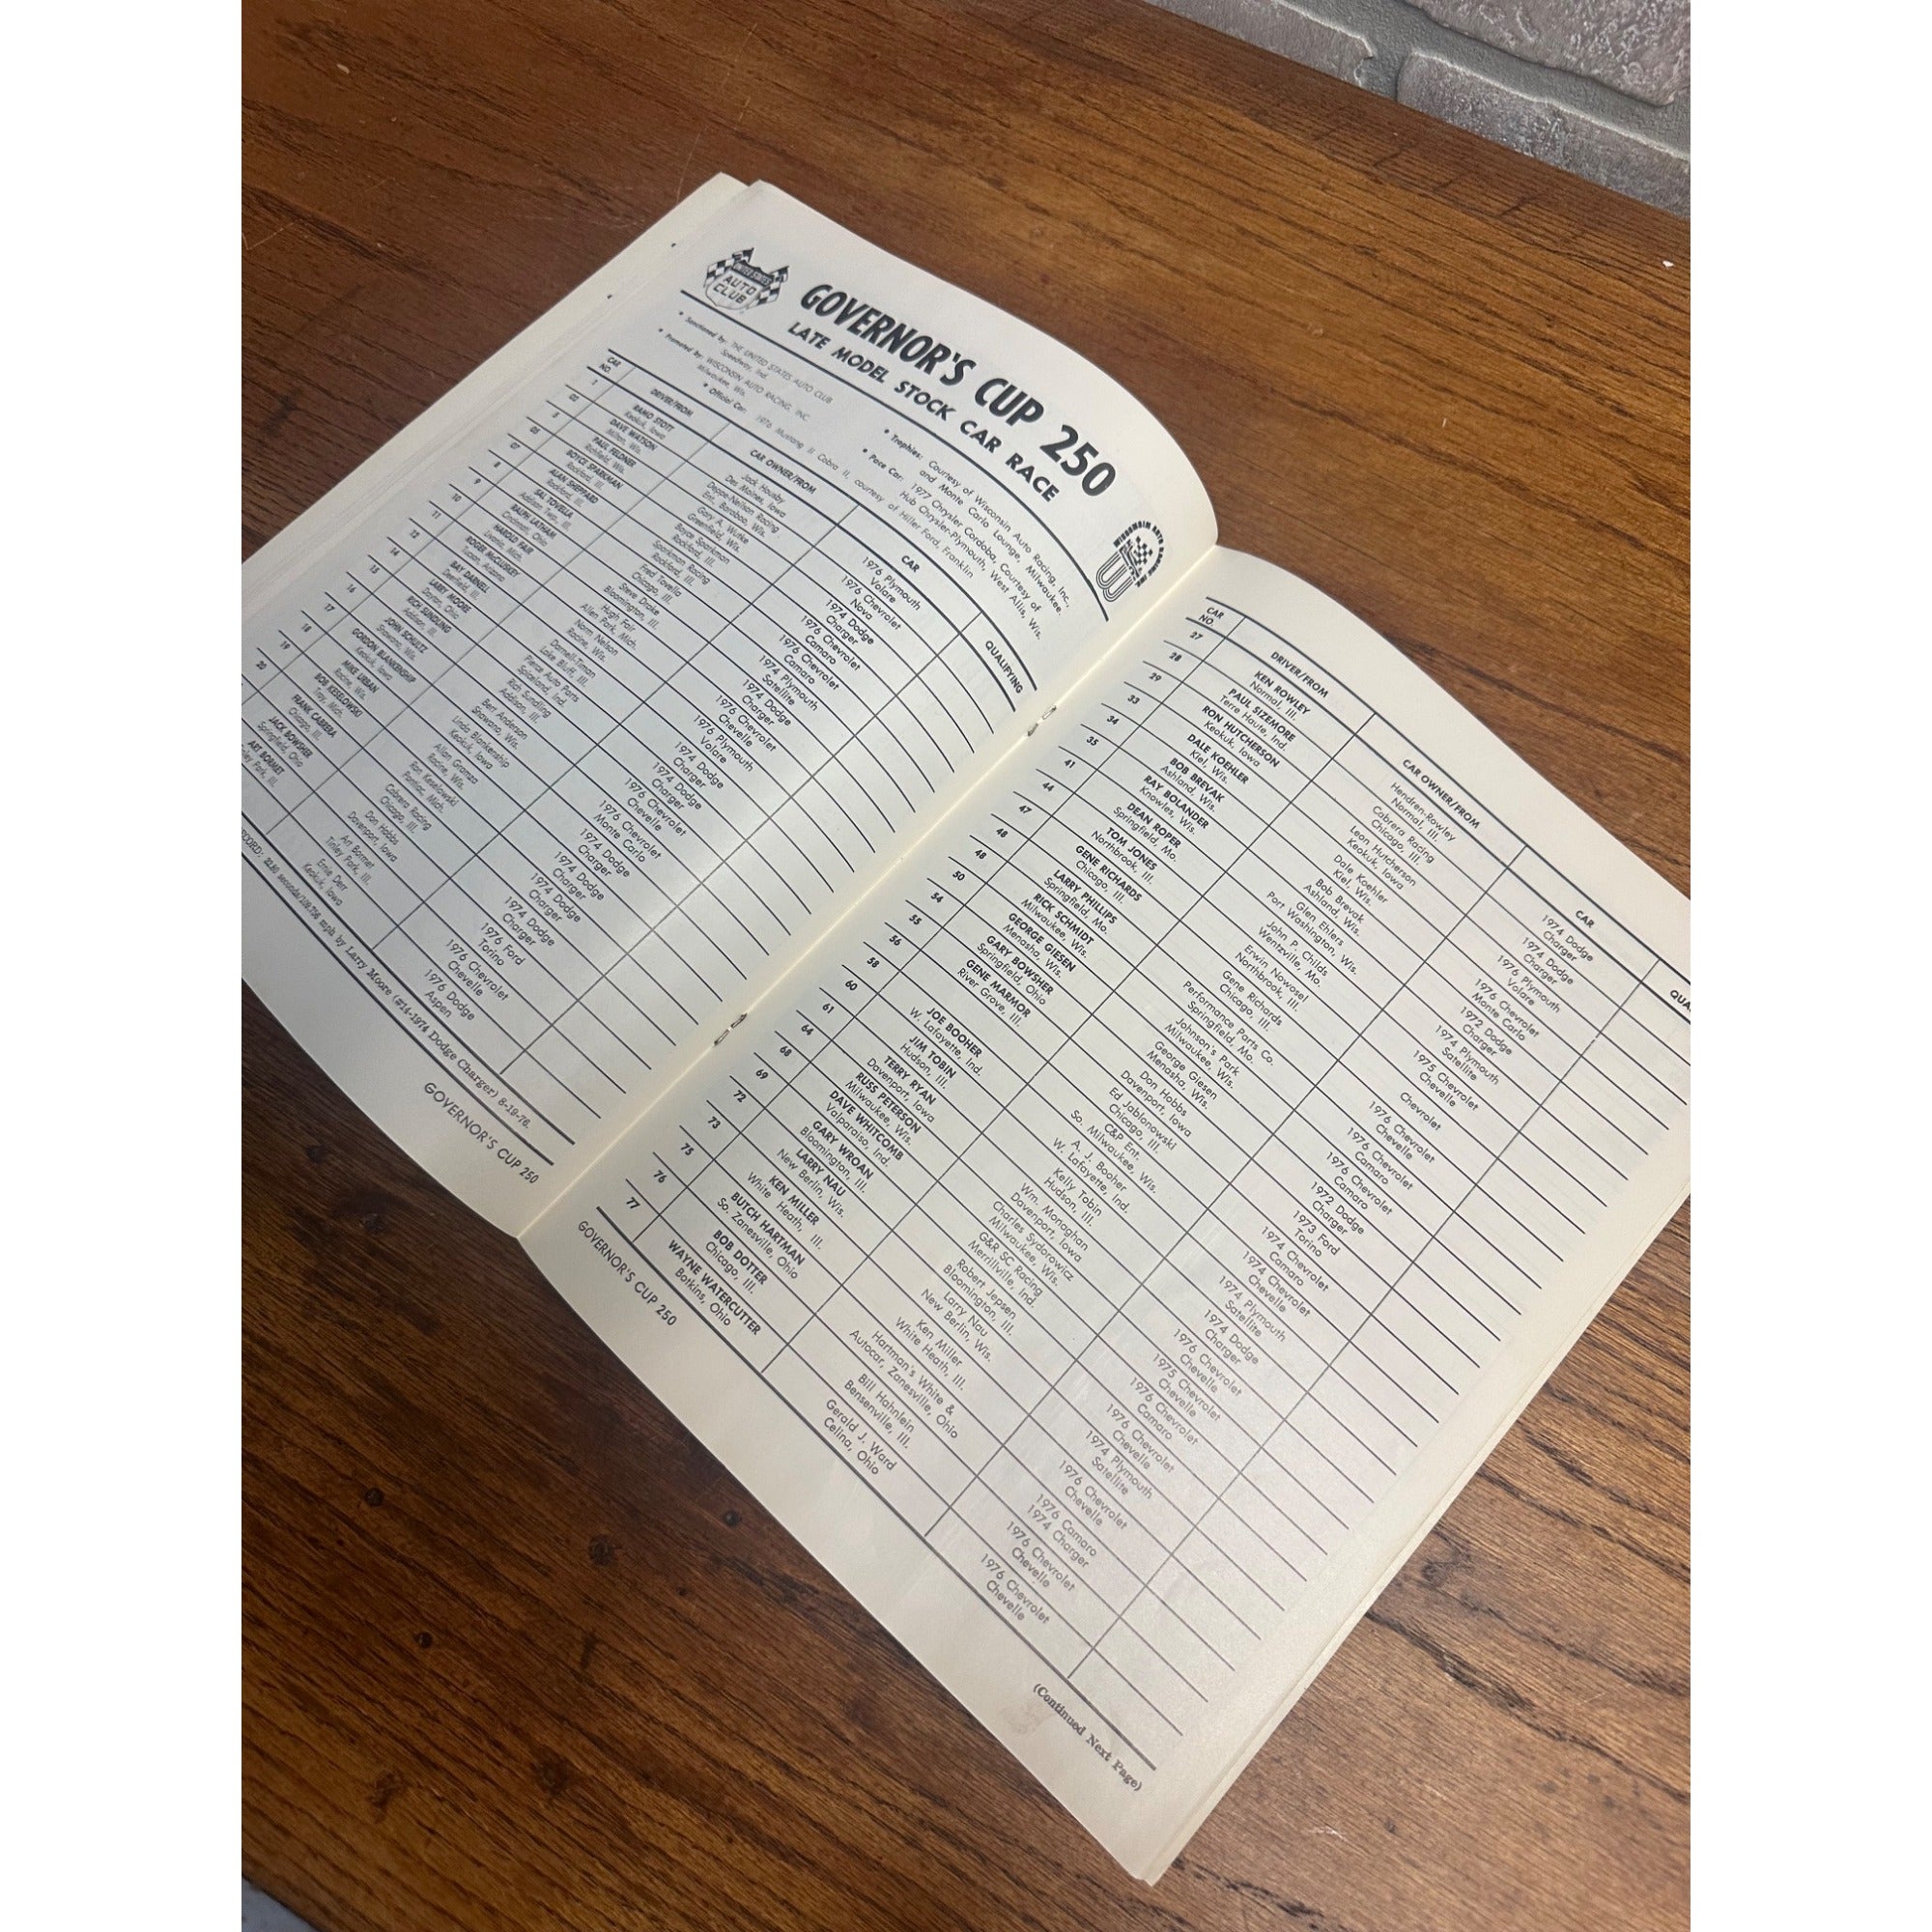 UNITED STATES
AUTO
CLUB
GOVERNOR'S CUP 250
LATE MODEL STOCK CAR RACE
WISCONSIN AUTO RACING INC.
• Sanctioned by: THE UNITED STATES AUTO CLUB
Speedway, Ind.
• Promoted by: WISCONSIN AUTO RACING, INC.
Milwaukee, Wis.
• Trophies: Courtesy of Wisconsin Auto Racing, Inc.,
and Monte Carlo Lounge, Milwaukee.
• Pace Car: 1977 Chrysler Cordoba, Courtesy of
Hub Chrysler-Plymouth, West Allis, Wis.
• Official Car: 1976 Mustang II Cobra II, courtesy of Hiller Ford, Franklin
CAR
NO.
DRIVER/FROM
CAR OWNER/FROM
CAR
QUALIFYING
1
02
5
05
07
8
9
10
11
12
14
15
16
17
18
19
20
RAMO STOTT
Keokuk, Iowa
DAVE WATSON
Milton, Wis.
PAUL FELDNER
Richfield, Wis.
BOYCE SPARKMAN
Rockford, Ill.
ALAN SHEPPARD
Rockford, Ill.
SAL TOVELLA
Addison Twp., Ill.
RALPH LATHAM
Cincinnati, Ohio
HAROLD FAIR
Livonia, Mich.
ROGER McCLUSKEY
Tucson, Arizona
BAY DARNELL
Deerfield, Ill.
LARRY MOORE
Dayton, Ohio
RICH SUNDLING
Addison, Ill.
JOHN SCHULTZ
Shawano, Wis.
GORDON BLANKENSHIP
Keokuk, Iowa
MIKE URBAN
Racine, Wis.
BOB KESELOWSKI
Troy, Mich.
FRANK CABRERA
Chicago, Ill.
JACK BOWSHER
Springfield, Ohio
ART BORMET
Park, Ill.
Jack Housby
Des Moines, Iowa
Deppe-Neilson Racing
Ent. Baraboo, Wis.
Gary A. Wutke
Greenfield, Wis.
Boyce Sparkman
Rockford, Ill.
Sparkman Racing
Rockford, Ill.
Fred Tovella
Chicago, Ill.
Steve Drake
Bloomington, Ill.
Hugh Fair
Allen Park, Mich.
Norm Nelson
Racine, Wis.
Darnell-Timon
Lake Bluff, Ill.
Pierce Auto Parts
Spiceland, Ind.
Rich Sundling
Addison, Ill.
Bert Anderson
Shawano, Wis.
Linda Blankenship
Keokuk, Iowa
Allan Graneza
Racine, Wis.
Ron Keselowski
Pontiac, Mich.
Cabrera Racing
Chicago, Ill.
Don Hobbs
Davenport, Iowa
Art Bormet
Tinley Park, Ill.
Ernie Derr
Keokuk, Iowa
1976 Plymouth
Volare
1976 Chevrolet
Nova
1974 Dodge
Charger
1976 Chevrolet
Camaro
1976 Chevrolet
Camaro
1974 Plymouth
Satellite
1974 Dodge
Charger
1976 Chevrolet
Chevelle
1976 Plymouth
Volare
1974 Dodge
Charger
1974 Dodge
Charger
1976 Chevrolet
Chevelle
1976 Chevrolet
Monte Carlo
1974 Dodge
Charger
1974 Dodge
Charger
1974 Dodge
Charger
1974 Dodge
Charger
1976 Ford
Torino
1976 Chevrolet
Chevelle
1976 Dodge
Aspen
seconds/109.756 mph by Larry Moore (#14-1974 Dodge Charger) 8-19-76.
GOVERNOR'S CUP 250
CAR
NO.
DRIVER/FROM
CAR OWNER/FROM
CAR
QUA
27
28
29
33
34
35
41
44
47
48
48
50
54
55
56
58
60
61
64
68
69
72
73
75
76
77
KEN ROWLEY
Normal, Ill.
PAUL SIZEMORE
Terre Haute, Ind.
RON HUTCHERSON
Keokuk, Iowa
DALE KOEHLER
Kiel, Wis.
BOB BREVAK
Ashland, Wis.
RAY BOLANDER
Knowles, Wis.
DEAN ROPER
Springfield, Mo.
TOM JONES
Northbrook, Ill.
GENE RICHARDS
Chicago, Ill.
LARRY PHILLIPS
Springfield, Mo.
RICK SCHMIDT
Milwaukee, Wis.
GEORGE GIESEN
Menasha, Wis.
GARY BOWSHER
Springfield, Ohio
GENE MARMOR
River Grove, Ill.
JOE BOOHER
W. Lafayette, Ind.
JIM TOBIN
Hudson, Ill.
TERRY RYAN
Davenport, Iowa
RUSS PETERSON
Milwaukee, Wis.
DAVE WHITCOMB
Valparaiso Ind.
GARY WROAN
Bloomington, Ill.
LARRY NAU
New Berlin, Wis.
KEN MILLER
White Heath, Ill.
BUTCH HARTMAN
So. Zanesville, Ohio
BOB DOTTER
Chicago, Ill.
WAYNE WATERCUTTER
Botkins, Ohio
Hendren-Rowley
Normal, Ill.
Cabrera Racing
Chicago, Ill.
Leon Hutcherson
Keokuk, Iowa
Dale Koehler
Kiel, Wis.
Bob Brevak
Ashland, Wis.
Glen Ehlers
Port Washington, Wis.
John P. Childs
Wentzville, Mo.
Erwin Nowosel
Northbrook, Ill.
Gene Richards
Chicago, Ill.
Performance Parts Co.
Springfield, Mo.
Johnson's Park
Milwaukee, Wis.
George Giesen
Menasha, Wis.
Don Hobbs
Davenport, Iowa
Ed Jablonowski
Chicago, Ill.
C&P Ent.
So. Milwaukee, Wis.
A. J. Booher
W. Lafayette, Ind.
Kelly Tobin
Hudson, Ill.
Wm. Monaghan
Davenport, Iowa
Charles Sydbrowicz
Milwaukee, Wis.
G&R SC Racing
Merrillville, Ind.
Robert Jepsen
Bloomington, Ill.
Larry Nau
New Berlin, Wis.
Ken Miller
White Heath, Ill.
Hartman's White &
Autocar, Zanesville, Ohio
Bill Hahnlein
Bensenville, Ill.
Gerald J. Ward
Celina, Ohio
1974 Dodge
Charger
1974 Dodge
Charger
1976 Plymouth
Volare
1976 Chevrolet
Monte Carlo
1972 Dodge
Charger
1974 Plymouth
Satellite
1975 Chevrolet
Chevelle
Chevrolet
1976 Chevrolet
Chevelle
1976 Chevrolet
Camaro
1976 Chevrolet
Camaro
1972 Dodge
Charger
1973 Ford
Torino
1974 Chevrolet
Camaro
1974 Chevrolet
Chevelle
1974 Plymouth
Satellite
1974 Dodge
Charger
1976 Chevrolet
Chevelle
1975 Chevrolet
Chevelle
1976 Chevrolet
Camaro
1976 Chevrolet
Chevelle
1974 Plymouth
Satellite
1976 Chevrolet
Chevelle
1976 Camaro
1974 Charger
1976 Chevrolet
Chevelle
1976 Chevrolet
Chevelle
(Continued Next Page)
GOVERNOR'S CUP 250